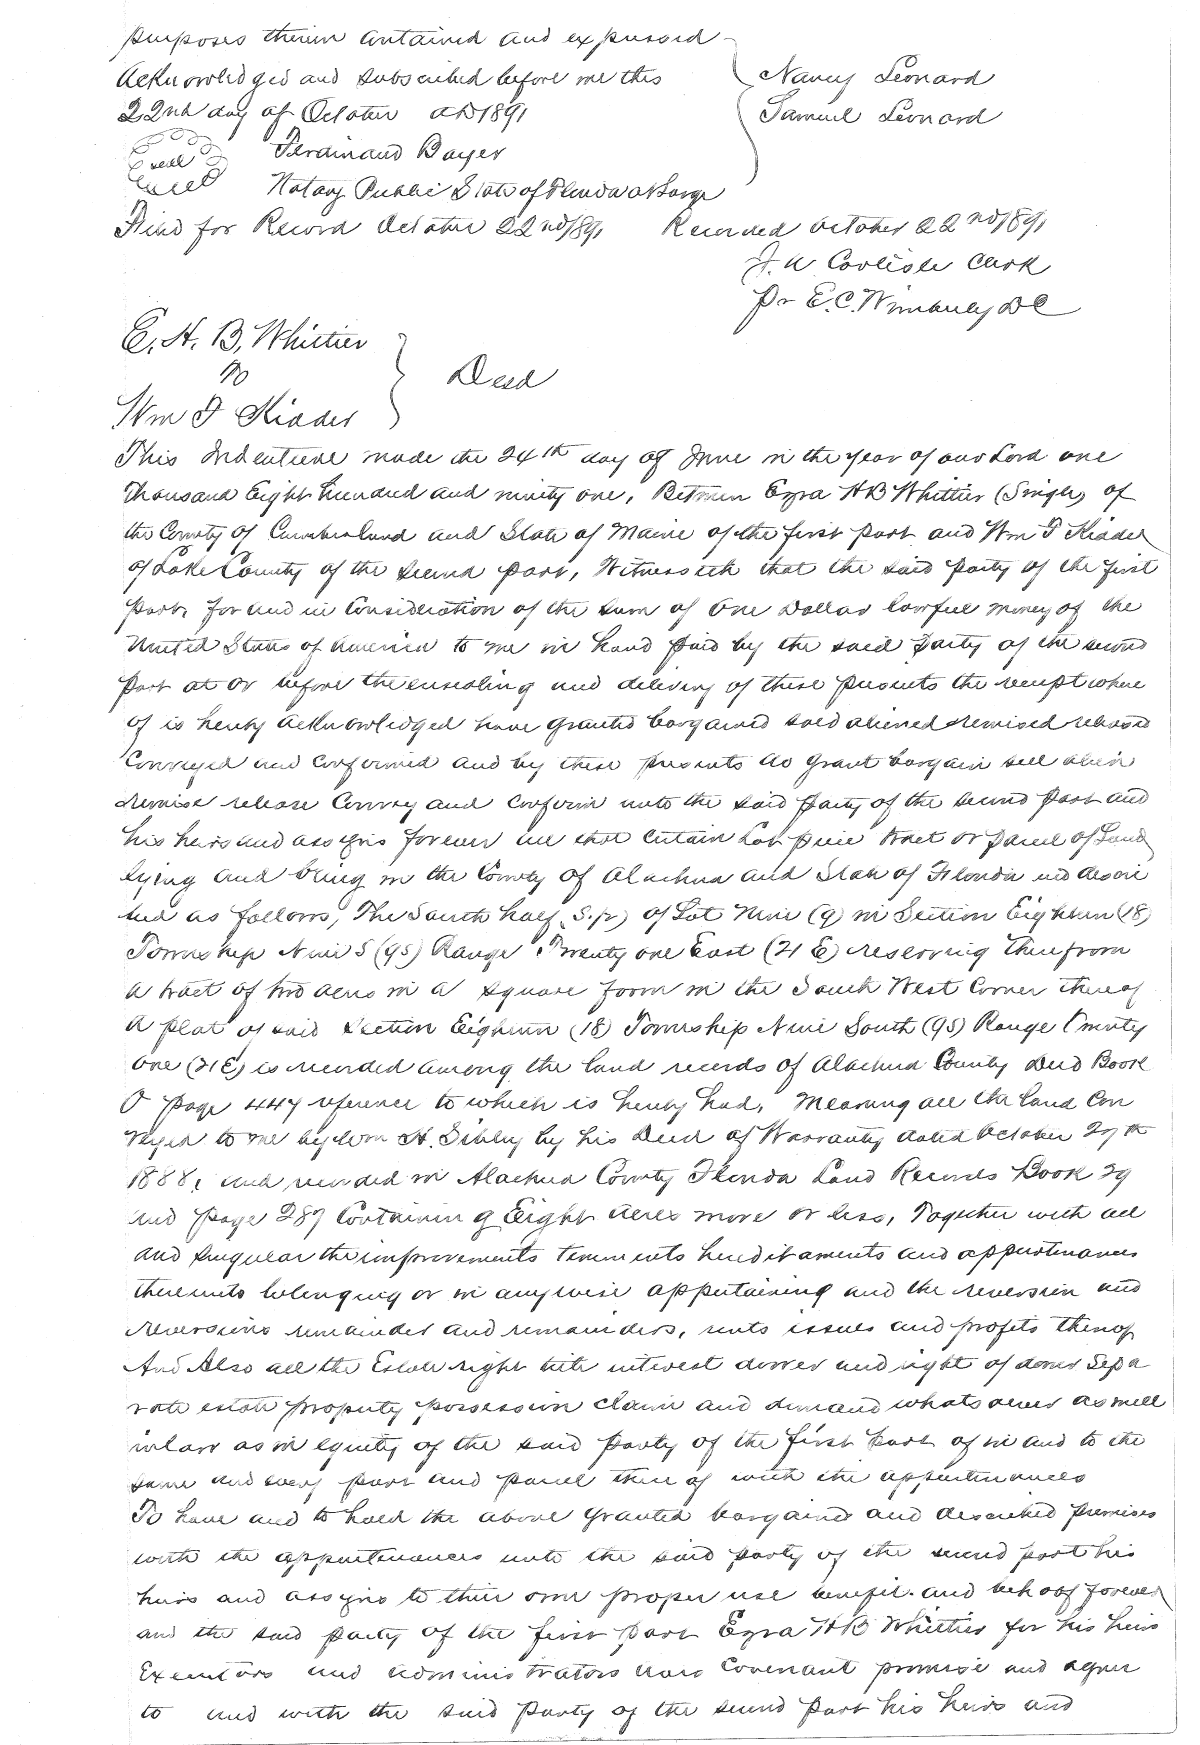 purposes therein contained and expressed
Acknowledged and subscribed before me this Nancy Leonard
22nd day of October AD 1891 Samuel Leonard
Seal Ferdinand Bayer
Notary Public State of Florida at Large
Filed for Record October 22nd 1891 Recorded October 22nd 1891
J. A Carlisle Clerk
Pr E.C. Wimberly DC
E. H. B. Whittier
to Deed
Wm F Kidder
This Indenture made the 24th day of June in the year of our Lord one
Thousand Eight Hundred and ninety one, Between Ezra HB Whittier (Single) of
the County of Cumberland and State of Maine of the first part and Wm F Kidder
of Lake County of the second part, Witnesseth that the said party of the first
part, for and in consideration of the sum of One Dollar lawful money of the
United States of America to me in hand paid by the said party of the second
part at or before the ensealing and delivery of these presents the receipt where
of is hereby acknowledged have granted bargained sold aliened remised released
Conveyed and confirmed and by these presents do grant bargain sell alien
remise release Convey and confirm unto the said party of the second part and
his heirs and assigns forever all that certain Lot piece tract or parcel of Land
lying and being in the County of Alachua and State of Florida and descri
bed as follows, The South half S.½) of Lot Nine (9) in Section Eighteen (18)
Township Nine S (9S) Range Twenty one East (21 E) reserving therefrom
a tract of two acres in a square form in the South West Corner thereof
A plat of said Section Eighteen (18) Township Nine South (9S) Range Twenty
one (21E) is recorded among the land records of Alachua County Deed Book
O page 447 reference to which is hereby had, Meaning all the land Con
veyed to me by Wm H. Sibley by his Deed of Warranty dated October 27th
1888, and recorded in Alachua County Florida Land Records Book 29
and page 287 Containing Eight Acres more or less, Together with all
and singular the improvements tenements hereditaments and appurtenances
thereunto belonging or in anywise appertaining and the reversion and
reversions remainder and remainders, rents issues and profits thereof
And Also all the Estate right title interest dower and right of dower Sepa
rate estate property possession claim and demand whatsoever as well
in law as in equity of the said party of the first part of in and to the
same and every part and parcel thereof with the appurtenances
To have and to hold the above granted bargained and described premises
with the appurtenances unto the said party of the second part his
heirs and assigns to their own proper use benefit and behoof forever
and the said party of the first part Ezra HB Whittier for his heirs
Executors and administrators does Covenant promise and agree
to and with the said party of the second part his heirs and